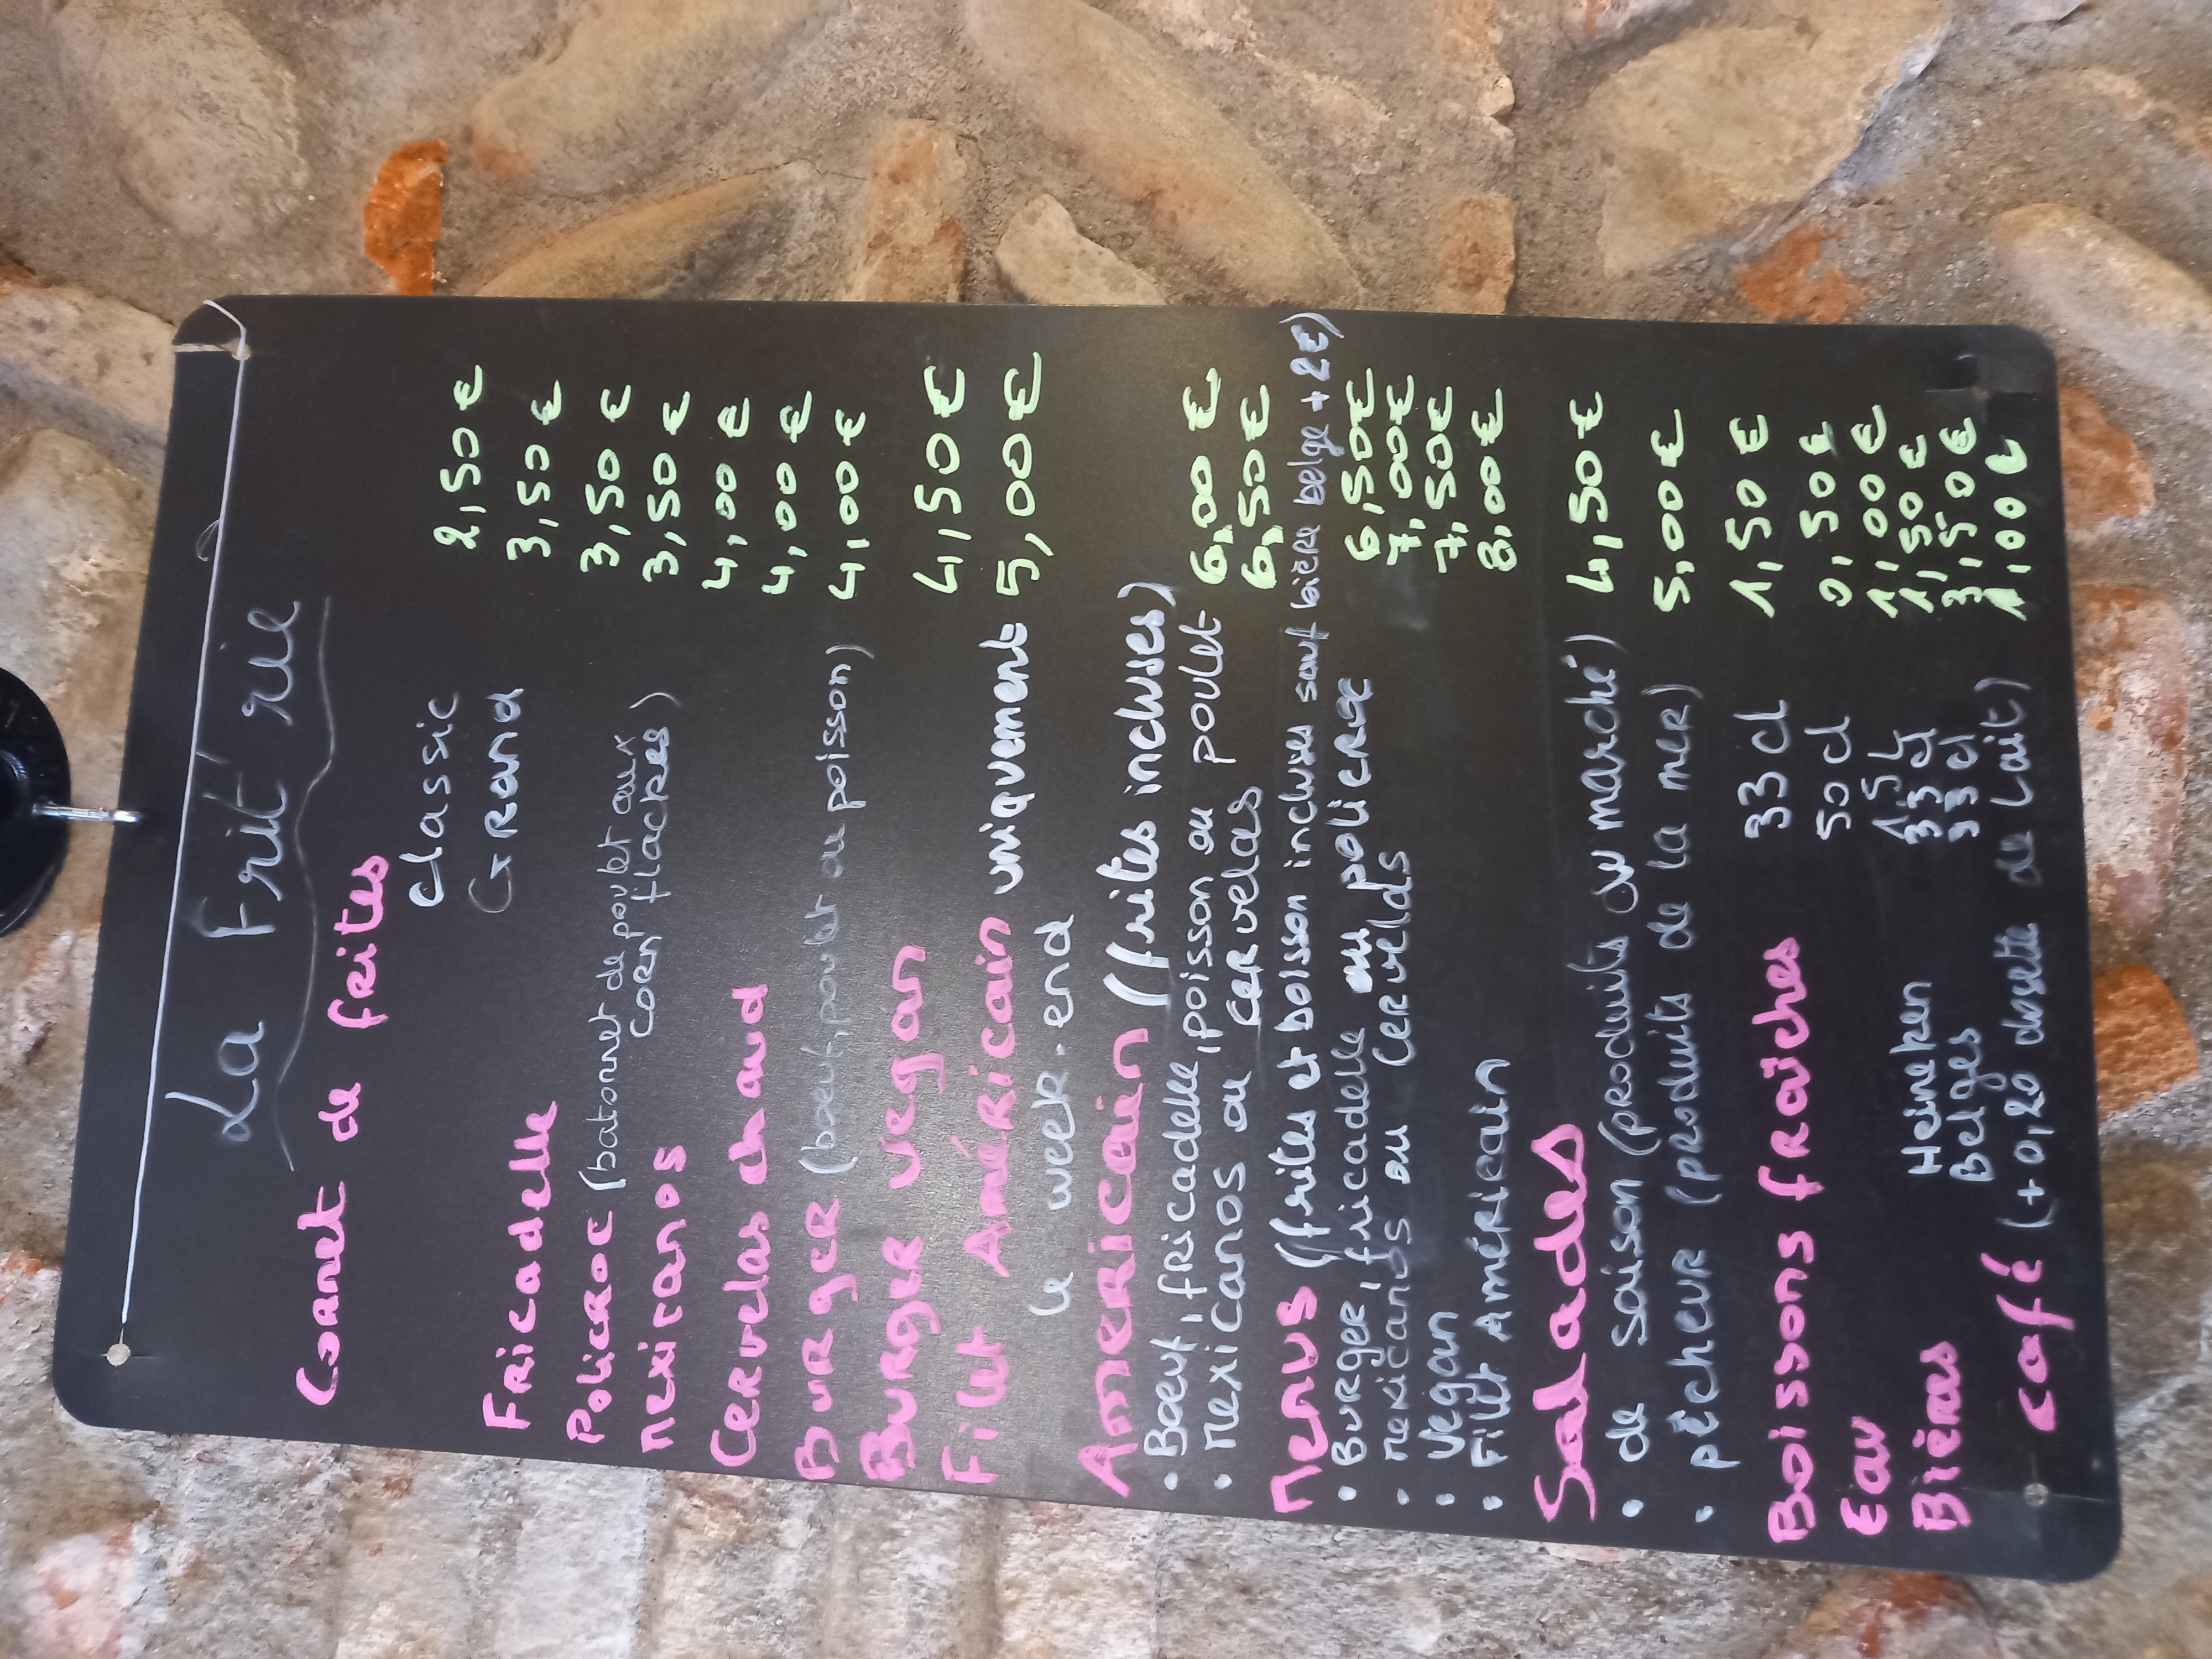 La Frit'rie
Cornet de frites
Classic 2,50 €
Grand 3,50 €
Fricadelle 3,50 €
Policroc (batonnet de poulet aux corn flackes) 3,50 €
Mexicanos 4,00 €
Cervelas chaud 4,00 €
Burger (boeuf, poulet ou poisson) 4,00 €
Burger vegan 4,50 €
Filet Américain uniquement 5,00 €
le week-end
Americain (frites incluses)
• Boeuf, fricadelle, poisson ou poulet 6,00 €
• Mexicanos ou cervelas 6,50 €
Menus (frites et boisson incluses sauf bière belge + 2€)
• Burger, fricadelle ou policroc 6,50 €
• Mexicanos ou cervelas 7,00 €
• Végan 7,50 €
• Filet Américain 8,00 €
Salades
• de saison (produits du marché) 4,50 €
• pêcheur (produits de la mer) 5,00 €
Boissons fraîches 33 cl 1,50 €
Eau 50 cl 0,50 €
1,5 L 1,00 €
Bières Heineken 33 cl 1,50 €
Belges 33 cl 3,50 €
café (+ 0,20 dosette de Lait) 1,00 €